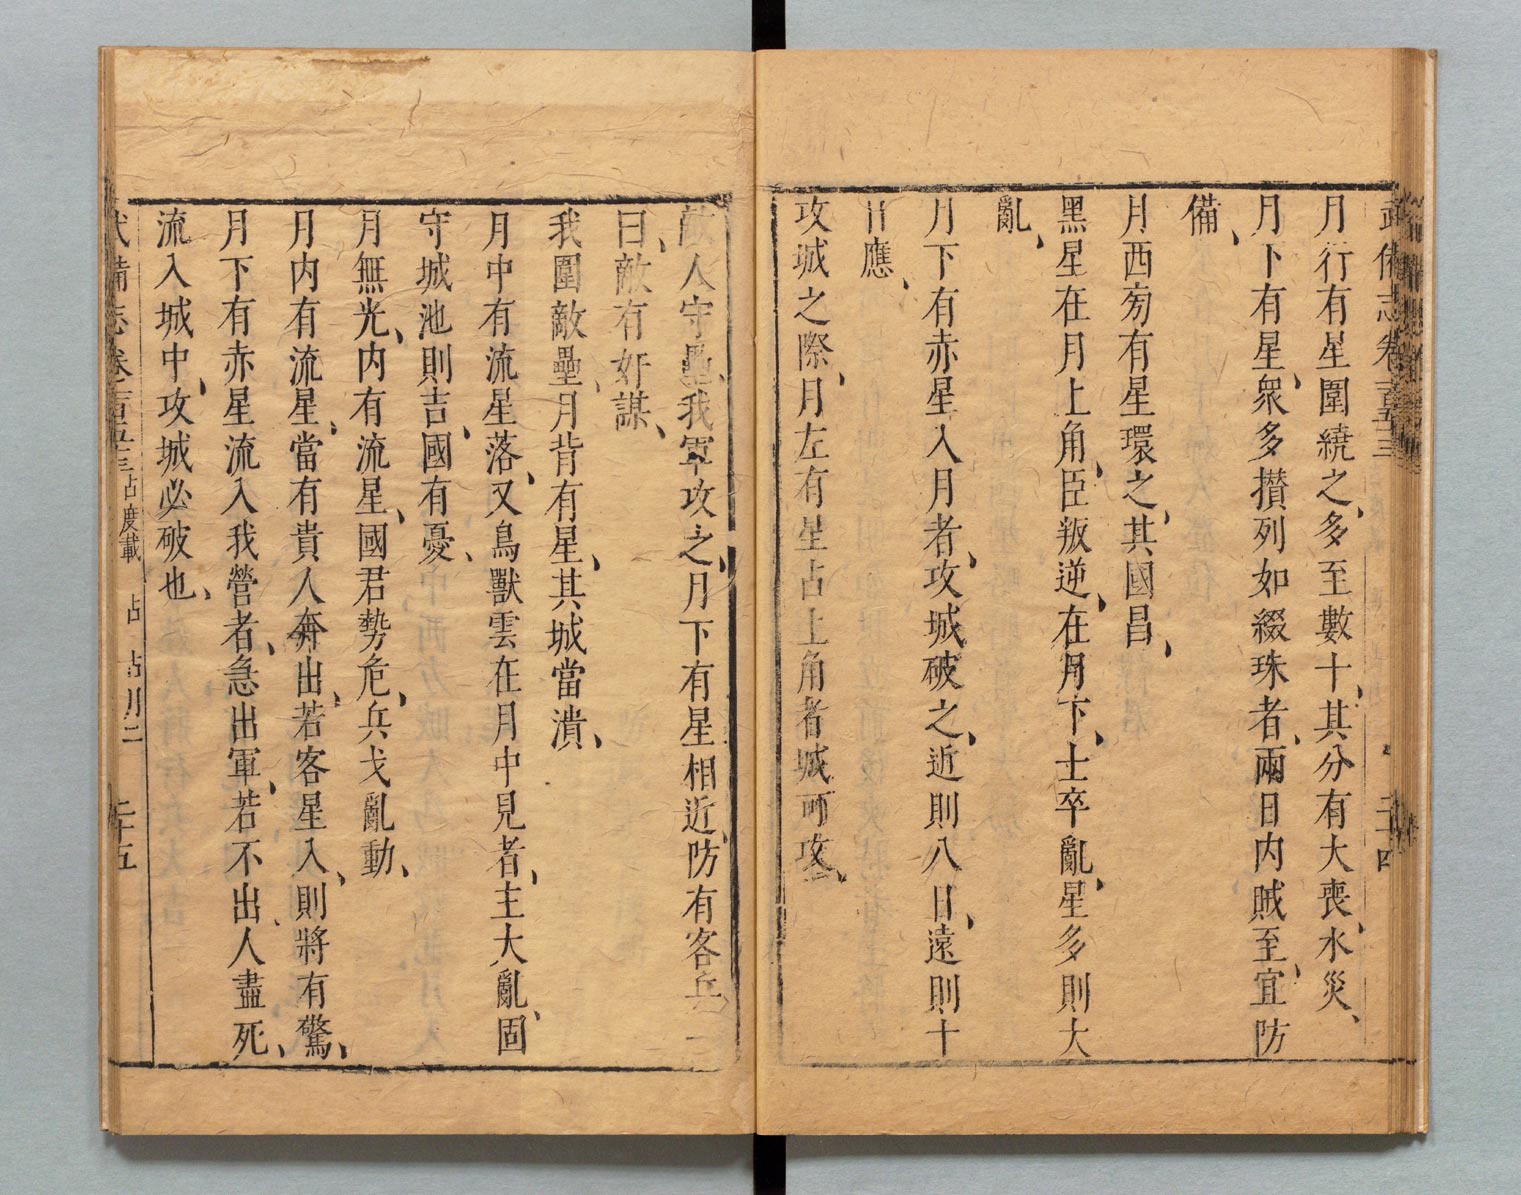 武備志卷一百五十三
二十四
月行有星圍繞之、多至數十、其分有大喪、水災、
月下有星、衆多攢列如綴珠者、兩日内賊至、宜防
備、
月西㫄有星環之、其國昌、
黑星在月上角、臣叛逆、在月下、士卒亂、星多則大
亂、
月下有赤星入月者、攻城破之、近則八日、遠則十
日應、
攻城之際、月左有星占上角者城可攻、
敵人守壘、我軍攻之、月下有星相近、防有客兵、一
曰、敵有奸謀、
我圍敵壘、月背有星、其城當潰、
月中有流星落、又鳥獸雲在月中見者、主大亂、固
守城池則吉、國有憂、
月無光、内有流星、國君勢危、兵戈亂動、
月内有流星、當有貴人奔出、若客星入、則將有驚、
月下有赤星流入我營者、急出軍、若不出、人盡死、
流入城中、攻城必破也、
武備志卷一百五十三 占度載 占 占月二 二十五